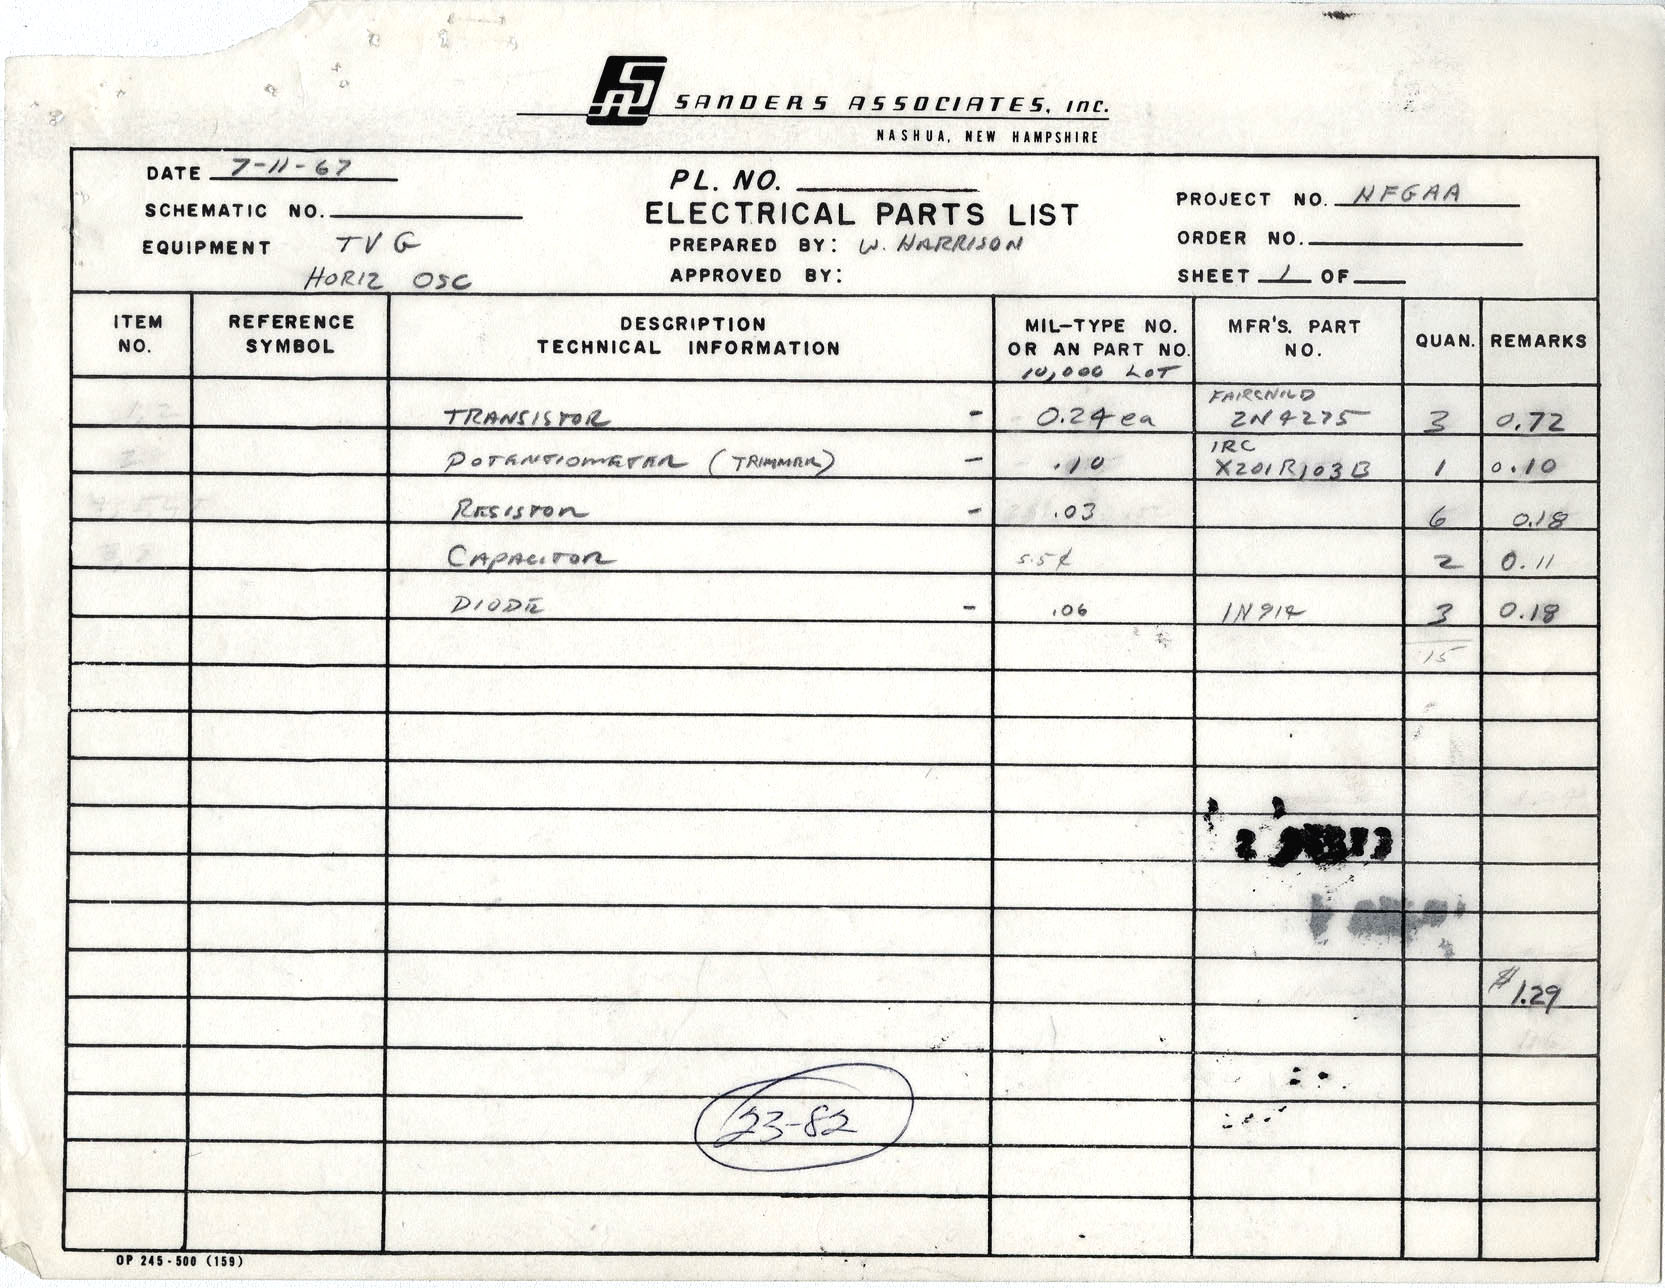 SANDERS ASSOCIATES, INC.
NASHUA, NEW HAMPSHIRE
DATE 7-11-67
SCHEMATIC NO.
EQUIPMENT TVG
HORIZ OSC
PL. NO.
ELECTRICAL PARTS LIST
PREPARED BY: W. HARRISON
APPROVED BY:
PROJECT NO. NFGAA
ORDER NO.
SHEET 1 OF
ITEM NO. REFERENCE SYMBOL DESCRIPTION TECHNICAL INFORMATION MIL-TYPE NO. OR AN PART NO. MFR'S. PART NO. QUAN. REMARKS
10,000 LOT
1,2 TRANSISTOR - 0.24 ea FAIRCHILD 2N4275 3 0.72
3 POTENTIOMETER (TRIMMER) - .10 IRC X201R103B 1 0.10
RESISTOR - .03 6 0.18
CAPACITOR 5.5¢ 2 0.11
DIODE - .06 1N914 3 0.18
15
$1.29
23-82
OP 245-500 (159)